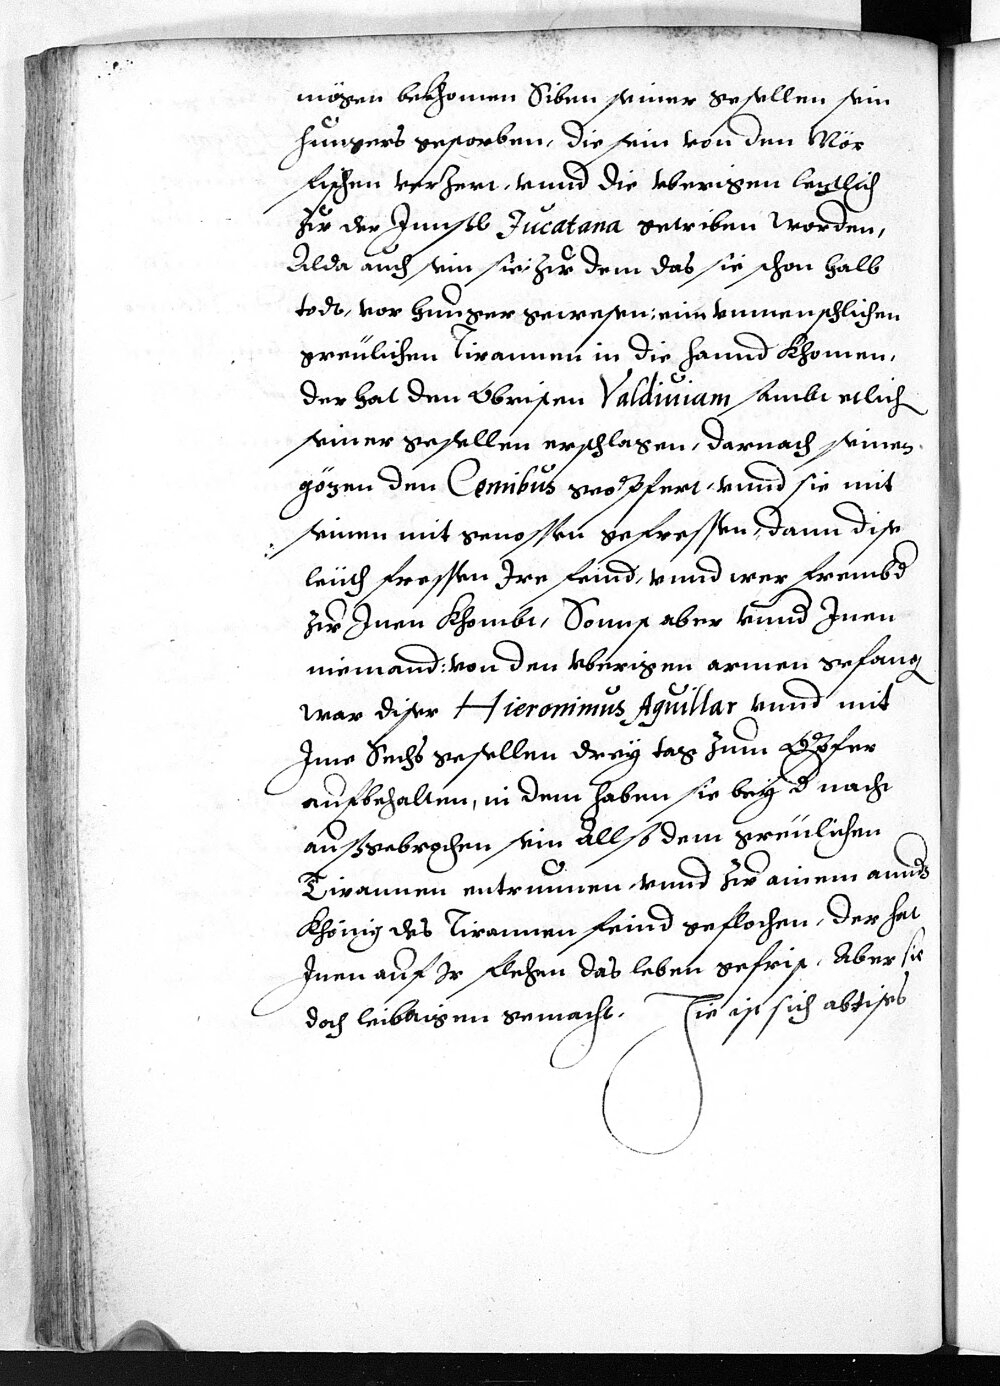 mögen bekhomen Siben seiner gesellen sein
hungers gestorben, die sein von den Mör
fischen verzert, vnnd die vberigen letztlich
zu der Innsel Jucatana getriben worden,
Alda auch sein sie zu dem das sie schon halb
todt, vor hunger gewesen, eim vnmenschlichen
greülichen Tirannen in die hannd khomen,
der hat den Obristen Valdiuiam sambt etlich
seiner gesellen erschlagen, darnach seinen
götzen den Cemibus geopfert, vnnd sie mit
seinen mit genossen gefressen, dann dise
leüth fressen Ire feind, vnnd wer frembd
zu Inen khombt, Sonnst aber vnnd Inen
niemand: von den vberigen armen gefang
war diser Hieronimus Aguillar vnnd mit
Ime Sechs gesellen drey tag zum Opfer
aufbehalten, in dem haben sie bey d nacht
außgebrochen sein Allso dem greülichen
Tirannen entrunnen, vnnd zu ainem annd
Khönig des Tirannen feind geflochen, der hat
Inen auf Ir flehen das leben gefrist, Aber sie
doch leibaigen gemacht. Hie ist sich